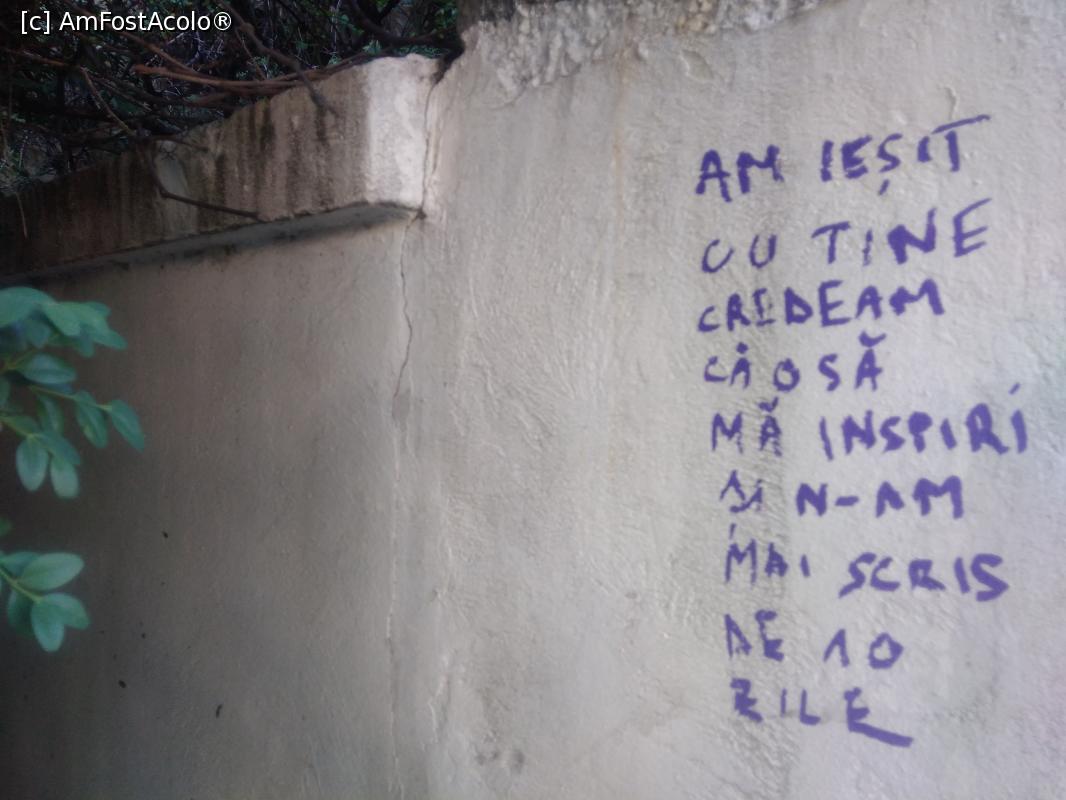 [c] AmFostAcolo®
AM IEȘIT
CU TINE
CREDEAM
CĂ O SĂ
MĂ INSPIRI
ȘI N-AM
MAI SCRIS
DE 10
ZILE